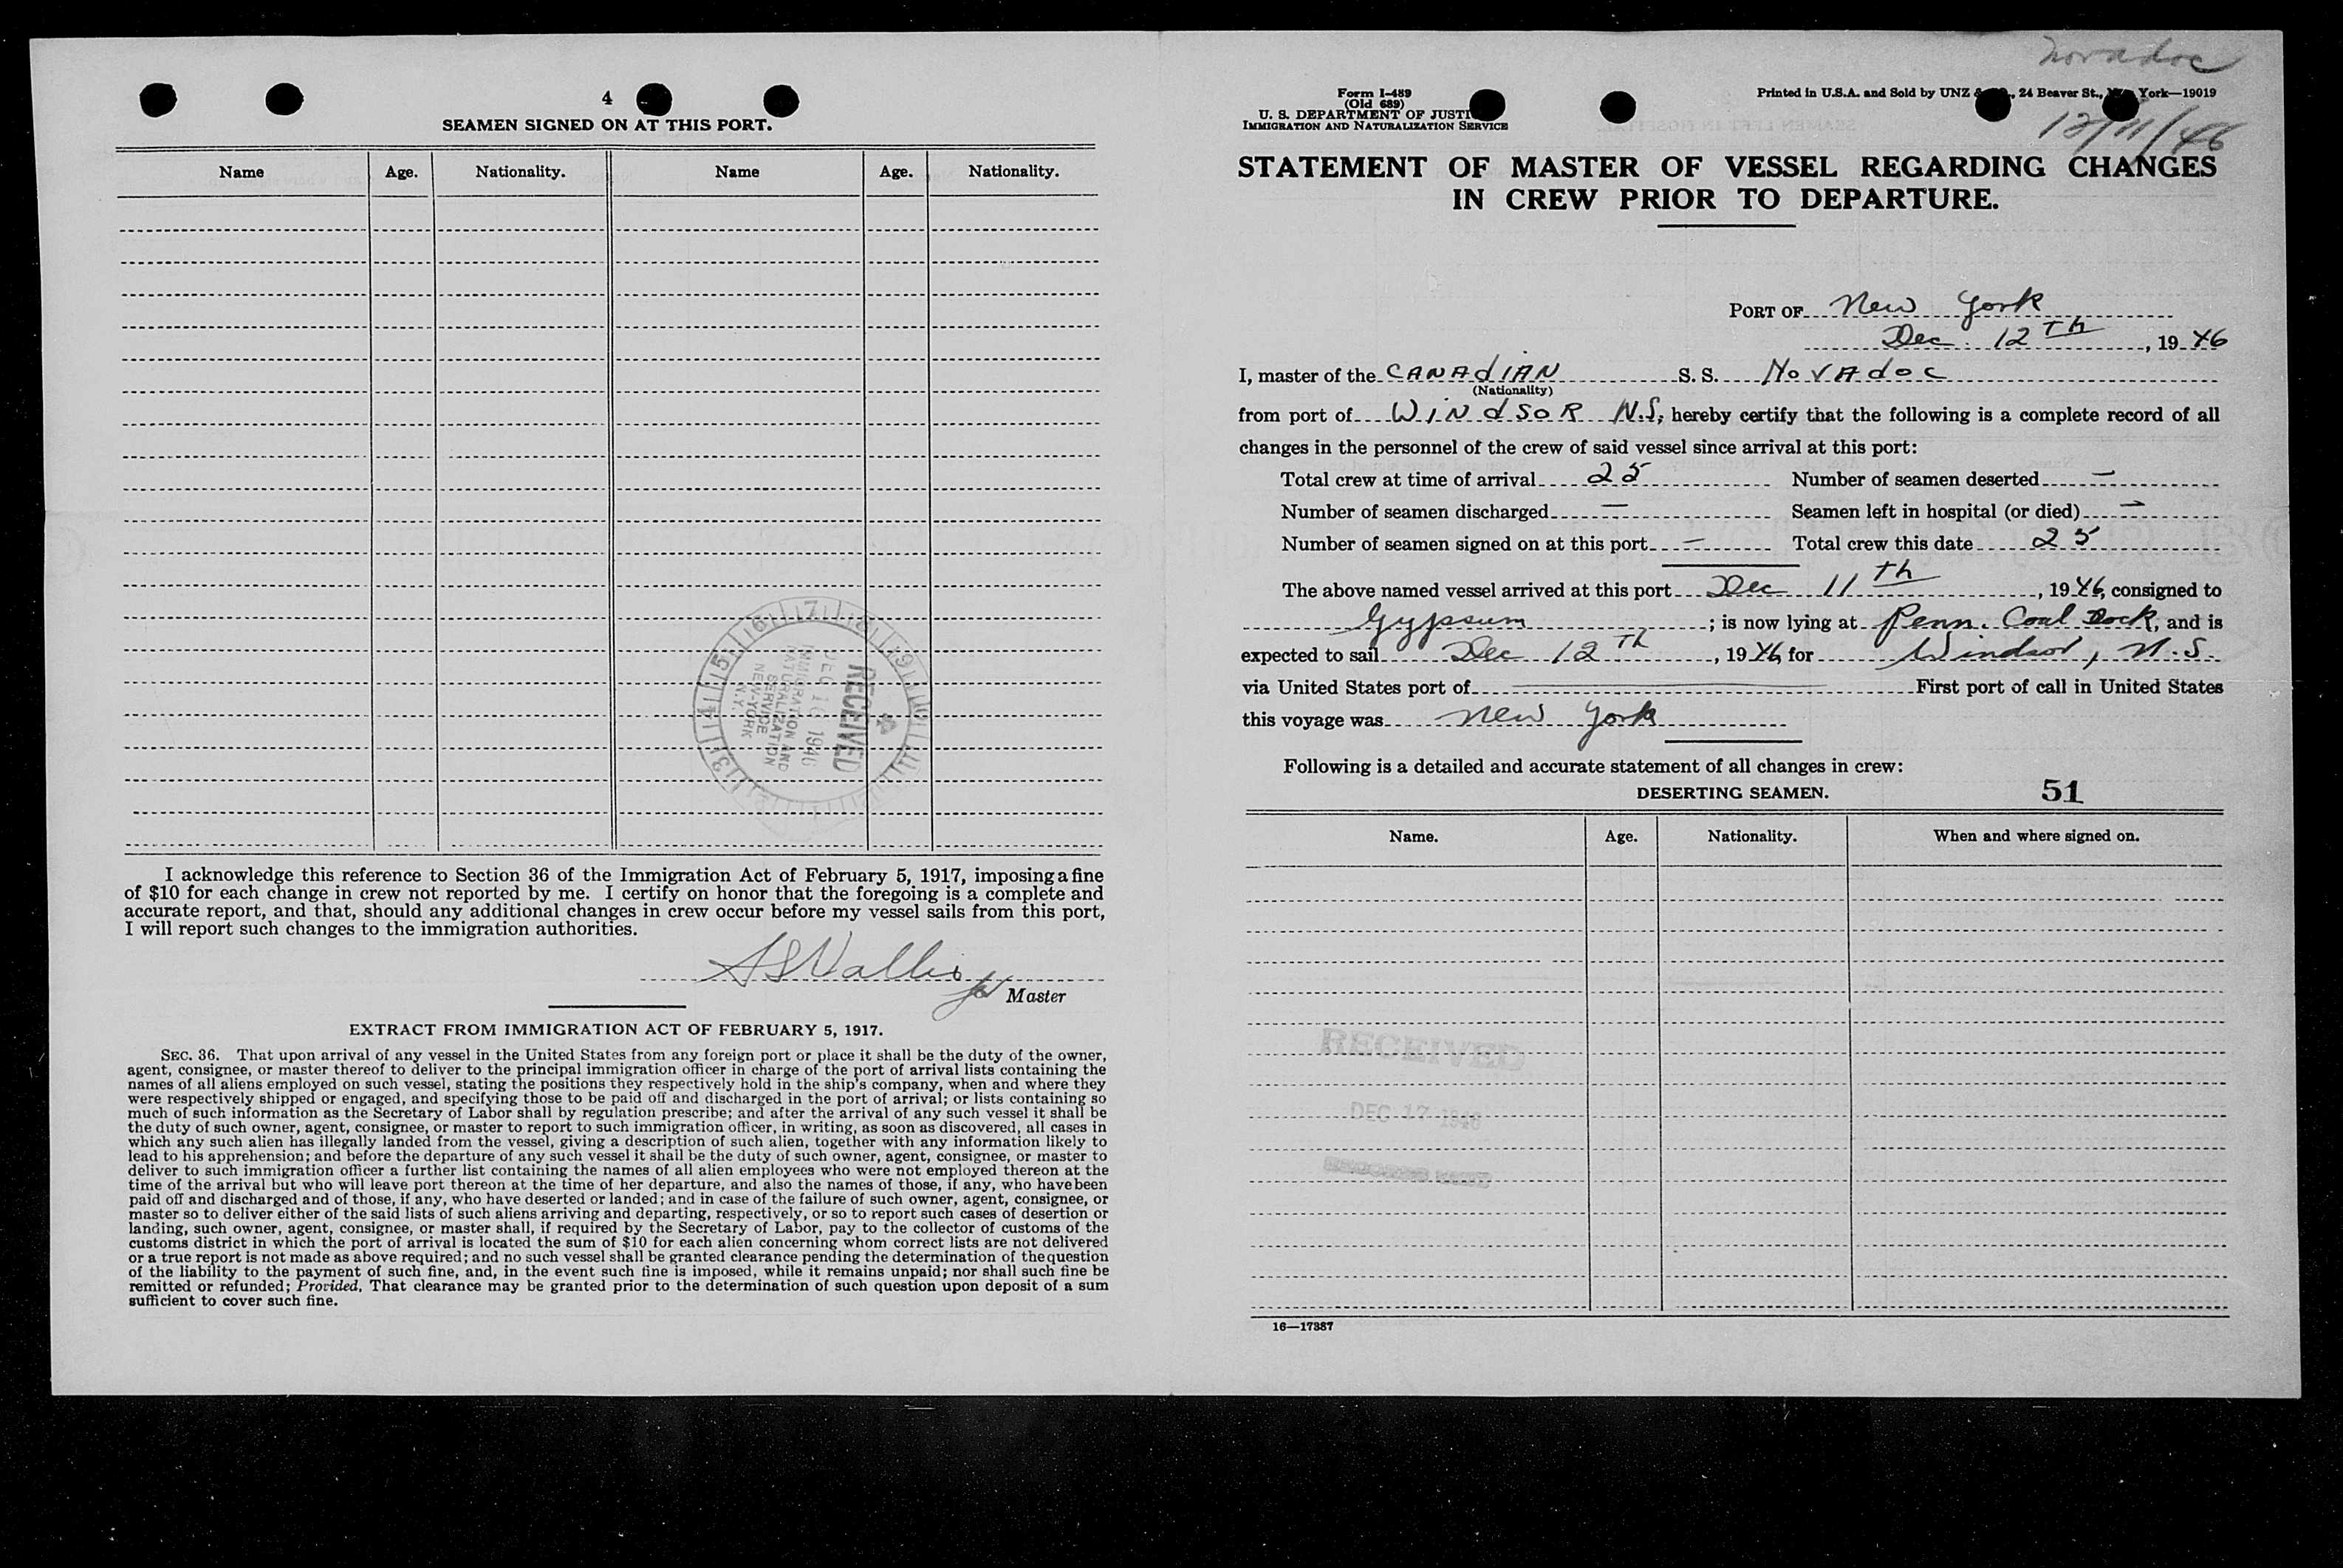 4
SEAMEN SIGNED ON AT THIS PORT.
Name Age. Nationality. Name Age. Nationality.
RECEIVED
DEC 16 1946
IMMIGRATION AND
NATURALIZATION
SERVICE
NEW-YORK
N.Y.
I acknowledge this reference to Section 36 of the Immigration Act of February 5, 1917, imposing a fine
of $10 for each change in crew not reported by me. I certify on honor that the foregoing is a complete and
accurate report, and that, should any additional changes in crew occur before my vessel sails from this port,
I will report such changes to the immigration authorities.
Master
EXTRACT FROM IMMIGRATION ACT OF FEBRUARY 5, 1917.
SEC. 36. That upon arrival of any vessel in the United States from any foreign port or place it shall be the duty of the owner,
agent, consignee, or master thereof to deliver to the principal immigration officer in charge of the port of arrival lists containing the
names of all aliens employed on such vessel, stating the positions they respectively hold in the ship's company, when and where they
were respectively shipped or engaged, and specifying those to be paid off and discharged in the port of arrival; or lists containing so
much of such information as the Secretary of Labor shall by regulation prescribe; and after the arrival of any such vessel it shall be
the duty of such owner, agent, consignee, or master to report to such immigration officer, in writing, as soon as discovered, all cases in
which any such alien has illegally landed from the vessel, giving a description of such alien, together with any information likely to
lead to his apprehension; and before the departure of any such vessel it shall be the duty of such owner, agent, consignee, or master to
deliver to such immigration officer a further list containing the names of all alien employees who were not employed thereon at the
time of the arrival but who will leave port thereon at the time of her departure, and also the names of those, if any, who have been
paid off and discharged and of those, if any, who have deserted or landed; and in case of the failure of such owner, agent, consignee, or
master so to deliver either of the said lists of such aliens arriving and departing, respectively, or so to report such cases of desertion or
landing, such owner, agent, consignee, or master shall, if required by the Secretary of Labor, pay to the collector of customs of the
customs district in which the port of arrival is located the sum of $10 for each alien concerning whom correct lists are not delivered
or a true report is not made as above required; and no such vessel shall be granted clearance pending the determination of the question
of the liability to the payment of such fine, and, in the event such fine is imposed, while it remains unpaid; nor shall such fine be
remitted or refunded; Provided, That clearance may be granted prior to the determination of such question upon deposit of a sum
sufficient to cover such fine.
Novadoc
12/11/46
Form I-489
(Old 689)
U. S. DEPARTMENT OF JUSTI
IMMIGRATION AND NATURALIZATION SERVICE
Printed in U.S.A. and Sold by UNZ &, 24 Beaver St., York—19019
STATEMENT OF MASTER OF VESSEL REGARDING CHANGES
IN CREW PRIOR TO DEPARTURE.
PORT OF New York
Dec. 12th, 1946
I, master of the CANAdIAN S. S. NovAdoc
(Nationality)
from port of WINdSOR N.S, hereby certify that the following is a complete record of all
changes in the personnel of the crew of said vessel since arrival at this port:
Total crew at time of arrival 25 Number of seamen deserted —
Number of seamen discharged — Seamen left in hospital (or died) —
Number of seamen signed on at this port — Total crew this date 25
The above named vessel arrived at this port Dec 11th, 1946, consigned to
Gypsum; is now lying at Penn. Coal Dock, and is
expected to sail Dec 12th, 1946 for Windsor, N.S.
via United States port of — First port of call in United States
this voyage was New York
Following is a detailed and accurate statement of all changes in crew:
DESERTING SEAMEN. 51
Name. Age. Nationality. When and where signed on.
RECEIVED
DEC 17 1946
16—17387